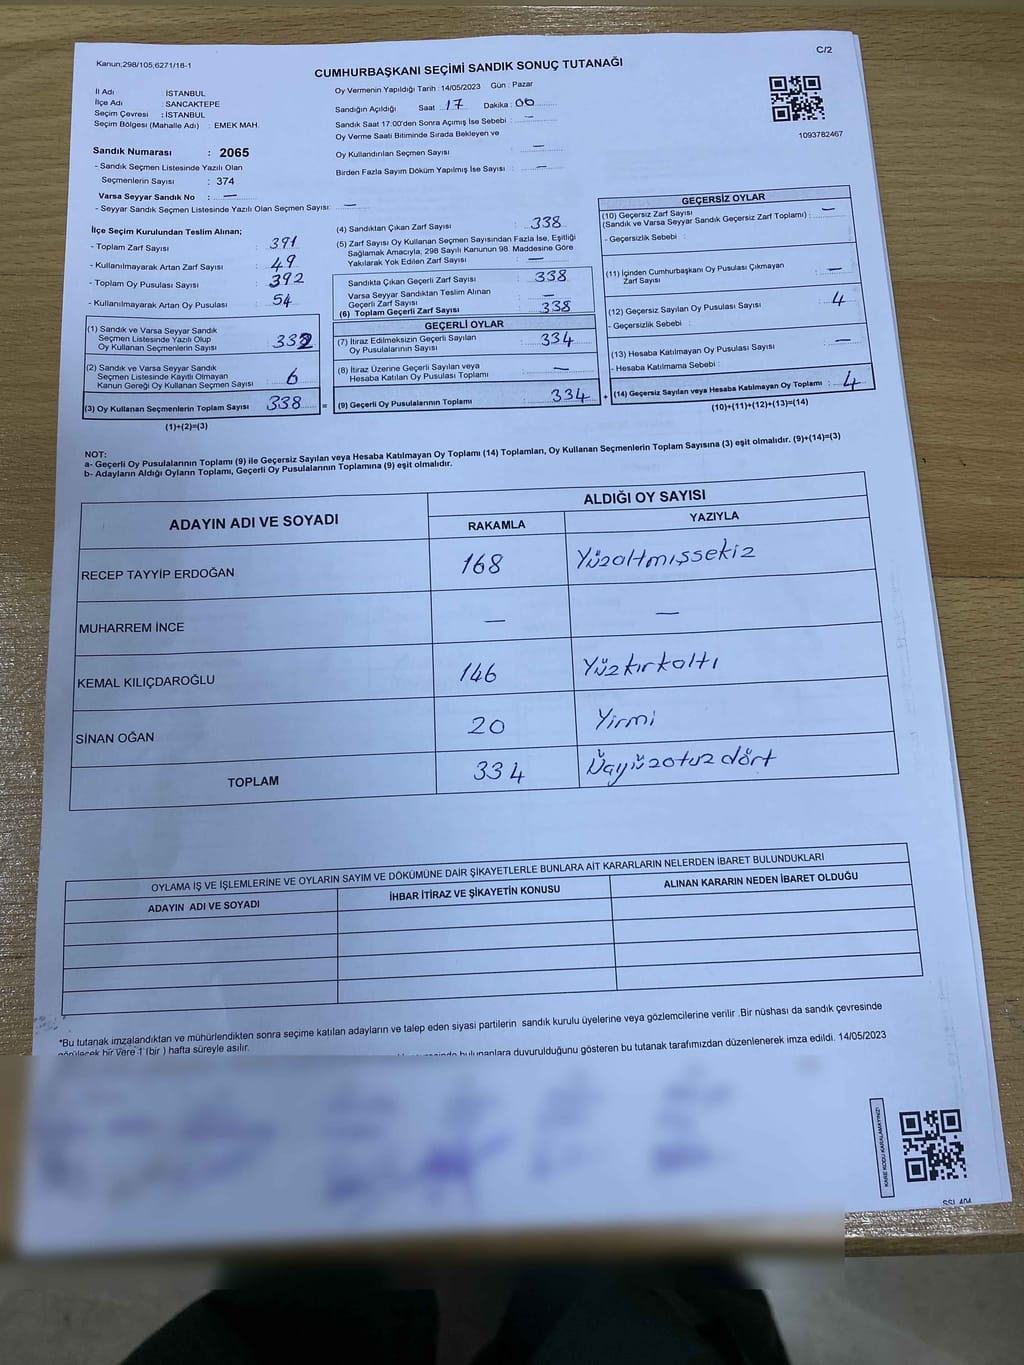 C/2
Kanun;298/105;6271/18-1
CUMHURBAŞKANI SEÇİMİ SANDIK SONUÇ TUTANAĞI
İl Adı : İSTANBUL
İlçe Adı : SANCAKTEPE
Seçim Çevresi : İSTANBUL
Seçim Bölgesi (Mahalle Adı) : EMEK MAH.
Oy Vermenin Yapıldığı Tarih : 14/05/2023 Gün : Pazar
Sandığın Açıldığı Saat : 17 Dakika : 00
Sandık Saat 17:00'den Sonra Açımış İse Sebebi : —
Oy Verme Saati Bitiminde Sırada Bekleyen ve
Oy Kullandırılan Seçmen Sayısı : —
Birden Fazla Sayım Döküm Yapılmış İse Sayısı : —
1093782467
Sandık Numarası : 2065
- Sandık Seçmen Listesinde Yazılı Olan
Seçmenlerin Sayısı : 374
Varsa Seyyar Sandık No : —
- Seyyar Sandık Seçmen Listesinde Yazılı Olan Seçmen Sayısı: —
İlçe Seçim Kurulundan Teslim Alınan;
- Toplam Zarf Sayısı : 391
- Kullanılmayarak Artan Zarf Sayısı : 49
- Toplam Oy Pusulası Sayısı : 392
- Kullanılmayarak Artan Oy Pusulası : 54
(1) Sandık ve Varsa Seyyar Sandık
Seçmen Listesinde Yazılı Olup
Oy Kullanan Seçmenlerin Sayısı : 332
(2) Sandık ve Varsa Seyyar Sandık
Seçmen Listesinde Kayıtlı Olmayan
Kanun Gereği Oy Kullanan Seçmen Sayısı : 6
(3) Oy Kullanan Seçmenlerin Toplam Sayısı : 338 =
(1)+(2)=(3)
(4) Sandıktan Çıkan Zarf Sayısı : 338
(5) Zarf Sayısı Oy Kullanan Seçmen Sayısından Fazla İse, Eşitliği
Sağlamak Amacıyla; 298 Sayılı Kanunun 98. Maddesine Göre
Yakılarak Yok Edilen Zarf Sayısı : —
Sandıkta Çıkan Geçerli Zarf Sayısı : 338
Varsa Seyyar Sandıktan Teslim Alınan
Geçerli Zarf Sayısı : —
(6) Toplam Geçerli Zarf Sayısı : 338
GEÇERLİ OYLAR
(7) İtiraz Edilmeksizin Geçerli Sayılan
Oy Pusulalarının Sayısı : 334
(8) İtiraz Üzerine Geçerli Sayılan veya
Hesaba Katılan Oy Pusulası Toplamı : —
(9) Geçerli Oy Pusulalarının Toplamı : 334 +
GEÇERSİZ OYLAR
(10) Geçersiz Zarf Sayısı
(Sandık ve Varsa Seyyar Sandık Geçersiz Zarf Toplamı) : —
- Geçersizlik Sebebi :
(11) İçinden Cumhurbaşkanı Oy Pusulası Çıkmayan
Zarf Sayısı : —
(12) Geçersiz Sayılan Oy Pusulası Sayısı : 4
- Geçersizlik Sebebi :
(13) Hesaba Katılmayan Oy Pusulası Sayısı : —
- Hesaba Katılmama Sebebi :
(14) Geçersiz Sayılan veya Hesaba Katılmayan Oy Toplamı : 4
(10)+(11)+(12)+(13)=(14)
NOT:
a- Geçerli Oy Pusulalarının Toplamı (9) ile Geçersiz Sayılan veya Hesaba Katılmayan Oy Toplamı (14) Toplamları, Oy Kullanan Seçmenlerin Toplam Sayısına (3) eşit olmalıdır. (9)+(14)=(3)
b- Adayların Aldığı Oyların Toplamı, Geçerli Oy Pusulalarının Toplamına (9) eşit olmalıdır.
ADAYIN ADI VE SOYADI
ALDIĞI OY SAYISI
RAKAMLA YAZIYLA
RECEP TAYYİP ERDOĞAN 168 Yüzaltmışsekiz
MUHARREM İNCE — —
KEMAL KILIÇDAROĞLU 146 Yüzkırkaltı
SİNAN OĞAN 20 Yirmi
TOPLAM 334 Üçyüzotuzdört
OYLAMA İŞ VE İŞLEMLERİNE VE OYLARIN SAYIM VE DÖKÜMÜNE DAİR ŞİKAYETLERLE BUNLARA AİT KARARLARIN NELERDEN İBARET BULUNDUKLARI
ADAYIN ADI VE SOYADI İHBAR İTİRAZ VE ŞİKAYETİN KONUSU ALINAN KARARIN NEDEN İBARET OLDUĞU
*Bu tutanak imzalandıktan ve mühürlendikten sonra seçime katılan adayların ve talep eden siyasi partilerin sandık kurulu üyelerine veya gözlemcilerine verilir .Bir nüshası da sandık çevresinde
görülecek bir yere 1 (bir ) hafta süreyle asılır.
bulunanlara duyurulduğunu gösteren bu tutanak tarafımızdan düzenlenerek imza edildi. 14/05/2023
KARE KODU KARALAMAYINIZ!